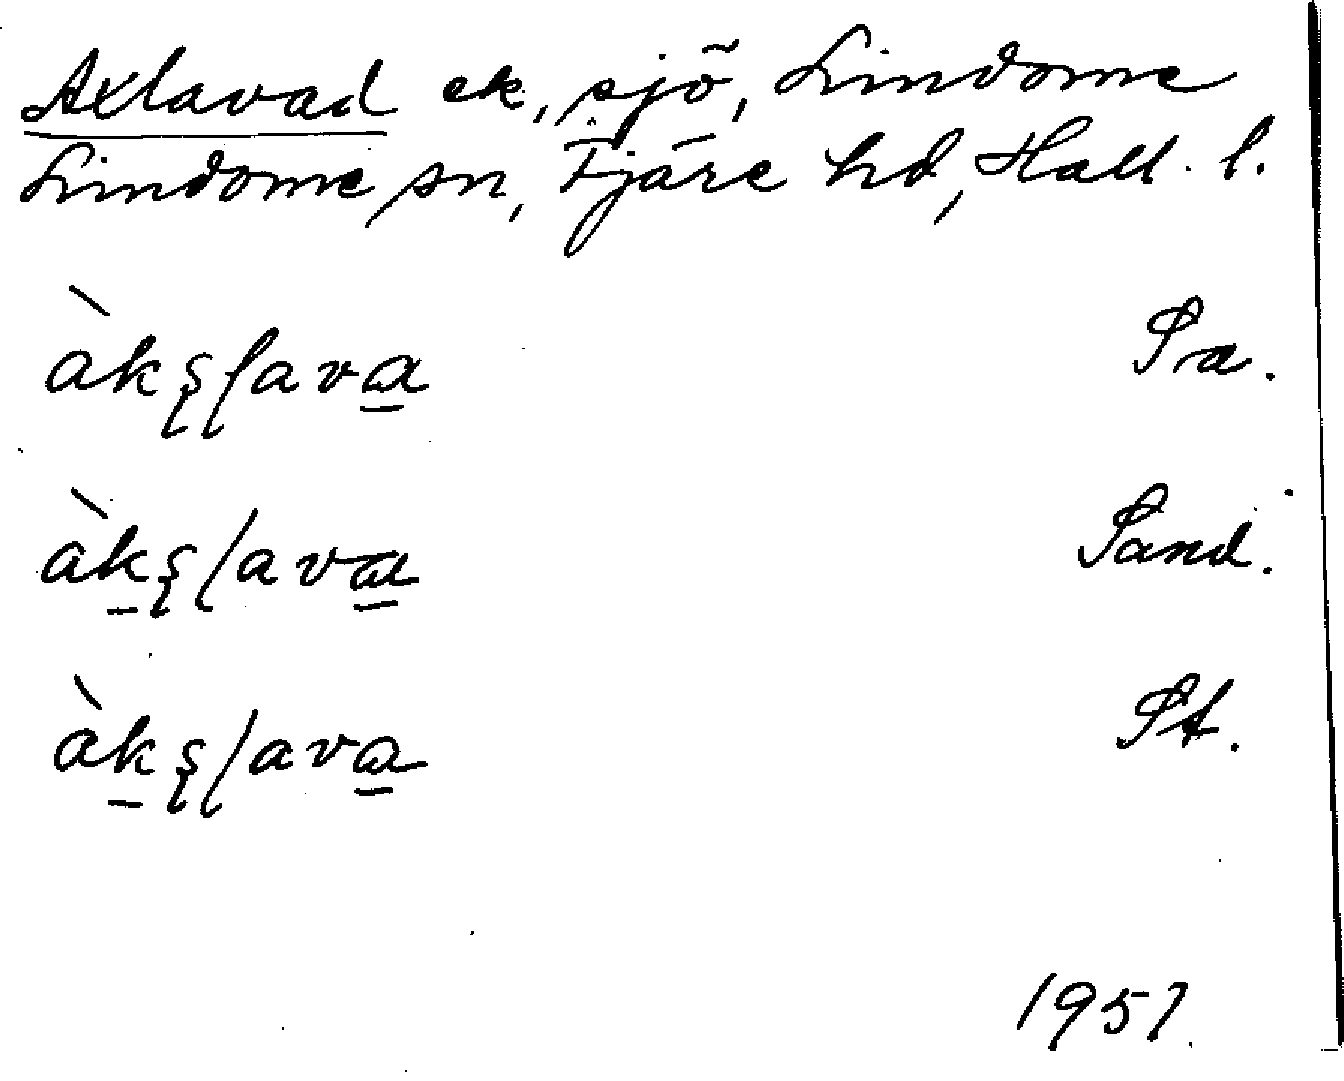 Axlavad ek, sjö, Lindome
Lindome sn, Fjäre hd, Hall. l.
àkșlava Sa.
àkșlava Sand.
àkșlava St.
1957